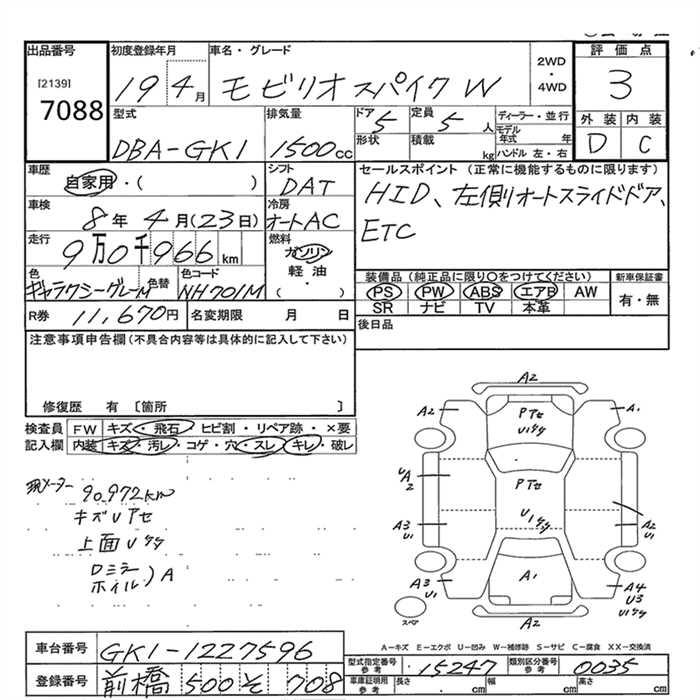 出品番号
[2139]
7088
初度登録年月
19 4月
車名・グレード
モビリオスパイク W
2WD
・
4WD
評価点
3
外装 内装
D C
型式
DBA-GK1
排気量
1500cc
ドア 5
形状
定員 5人
積載 kg
ディーラー・並行
モデル年式 年
ハンドル 左・右
車歴
自家用・( )
シフト
DAT
セールスポイント (正常に機能するものに限ります)
HID、左側オートスライドドア、
ETC
車検
8年 4月(23日)
冷房
オートAC
走行
9万0千966km
燃料
ガソリン
軽油
( )
色
ギャラクシーグレーM
色替
色コード
NH701M
装備品(純正品に限り○をつけてください)
PS PW ABS エアB AW
SR ナビ TV 本革
新車保証書
有・無
R券 11,670円
名変期限 月 日
後日品
注意事項申告欄(不具合内容等は具体的に記入して下さい)
修復歴 有 〔箇所 〕
検査員
記入欄
FW キズ・飛石 ヒビ割・リペア跡・×要
内装 キズ・汚レ・コゲ・穴・スレ・キレ・破レ
現メーター 90,972km
キズUアセ
上面Uケケ
ロミラー
ホイル)A
A2
A2
PアセU1ケケ
A1
UA2
PアセU1ケケ
A3U1
A2U1
A3U1
A1
A4U3U1ケケ
スペア
A2
A-キズ E-エクボ U-凹み W-補修跡 S-サビ C-腐食 XX-交換済
車台番号 GK1-1227596
型式指定番号
参考
15247
類別区分番号
参考
0035
登録番号 前橋 500 そ 708
車庫証明用
参考
長さ . cm
幅 . cm
高さ . cm